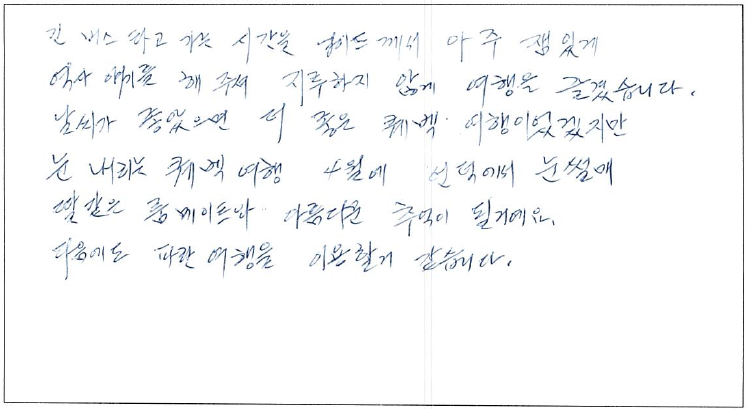 긴 버스 타고 가는 시간을 가이드께서 아주 잼있게
역사 얘기를 해 주셔 지루하지 않게 여행을 즐겼습니다.
날씨가 좋았으면 더 좋은 퀘백 여행이었겠지만
눈 내리는 퀘벡 여행 4월에 언덕에서 눈썰매
딸같은 룸메이트와 아름다운 추억이 될거에요.
다음에도 파란여행을 이용할거 같습니다.